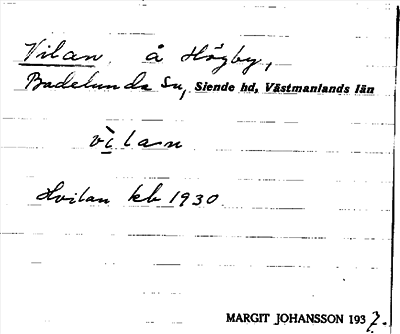 Vilan å Högby,
Badelunda Sn, Siende hd, Västmanlands län
vìlan
Hvilan kb 1930
MARGIT JOHANSSON 1937.